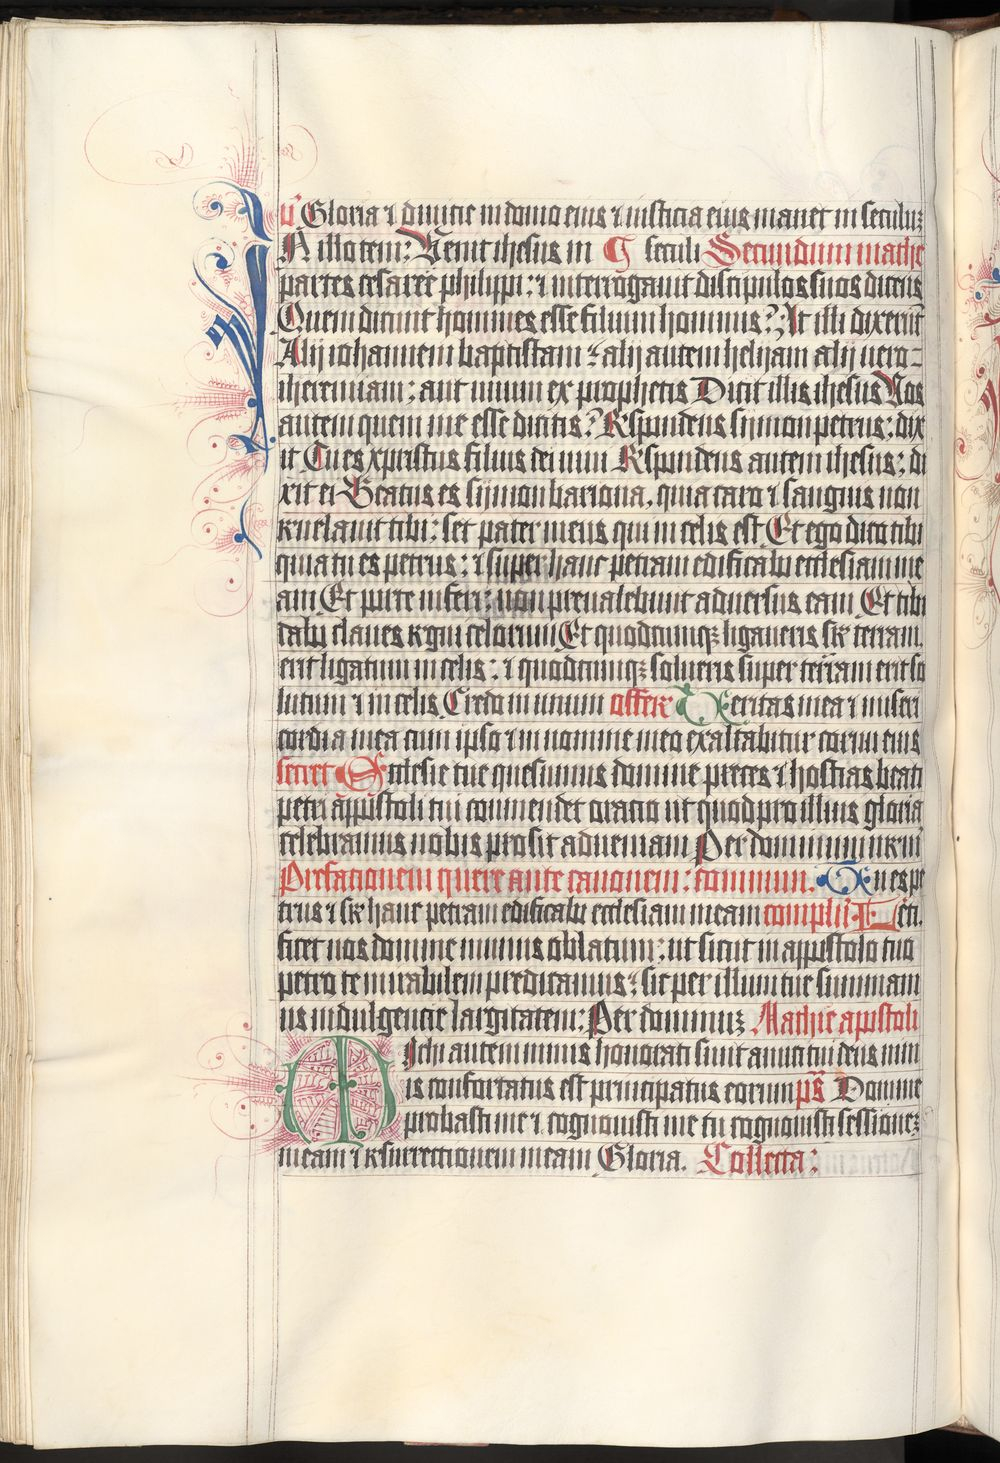 v̉ Gloria ⁊ diuicie in domo eius ⁊ iusticia eius manet in seculuꝫ
In illo tem: Venit ihesus in ¶ seculi Secundum mathe
partes cesaree philippi: ⁊ interrogauit discipulos suos dicens
Quem dicunt homines esse filium hominis? At illi dixerūt
Alij iohannem baptistam: alij autem helijam alij uero-
iheremiam: aut unum ex prophetis Dicit illis ihesus Vos
autem quem me esse dicitis? Respondens sijmon petrus: dix
it Tu es xpristus filius dei uiui Respondens autem ihesus: di
xit ei Beatus es sijmon bariona, quia caro ⁊ sanguis non
reuelauit tibi: set pater meus qui in celis est Et ego dico tibi
quia tu es petrus: ⁊ super hanc petram edificabo ecclesiam me
am Et porte inferi: non preualebunt aduersus eam Et tibi
dabo claues regni celorum Et quodcumqꝫ ligaueris super terram.
erit ligatum in celis: ⁊ quodcumqꝫ solueris super terram erit so
lutum ⁊ in celis Credo in unum offere Veritas mea ⁊ miseri
cordia mea cum ipso ⁊ in nomine meo exaltabitur cornu eius
secret Ecclesie tue quesumus domine preces ⁊ hostias beati
petri appostoli tui commendet oratio ut quod pro illius gloria
celebramus nobis prosit ad ueniam Per dominum nrm̄
Prefationem quere ante canonem: communi. Tu es pe
trus ⁊ super hanc petram edificabo ecclesiam meam complēd Leti.
ficet nos domine munus oblatum: ut sicut in appostolo tuo
petro te mirabilem predicamus: sic per illum tue sumam
us indulgencie largitatem: Per dominuꝫ Mathie apostoli
Michi autem nimis honorati sunt amici tui deus nim
is confortatus est principatus eorum ps̄ Domine
probasti me ⁊ cognouisti me tu cognouisti sessioneꝫ
meam ⁊ resurrectionem meam Gloria. Collecta: